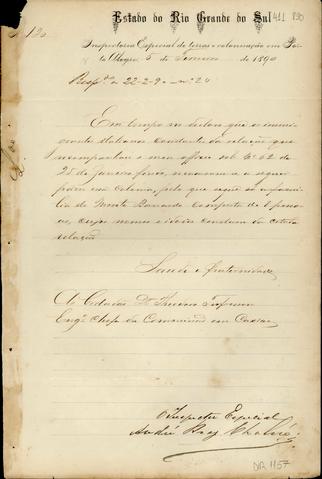 Estado do Rio Grande do Sul
Nº 120
Inspectoria Especial de terras e colonisação em Por-
to Alegre 5 de Fevereiro de 1890
Resp.da 22-2-90 - nº 24
Em tempo vos declaro que os immi-
grantes italianos constantes da relação que
acompanhou o meu officio sob Nº 62 de
25 de janeiro findo, a seguir
para essa Colonia, pelo que segue só a fami-
lia de Monte Bernardo composta de 8 pesso-
as, cujos nomes e idades constam da citada
relação
Saude e fraternidade
Ao Cidadão Dr.
Engº Chefe da Commissão em Caxias
O Inspector Especial
André